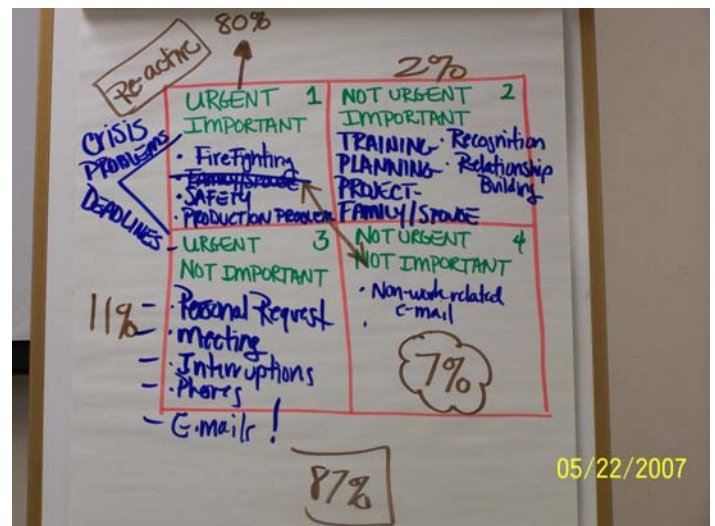 80%
Re-active
2%
URGENT 1
IMPORTANT
• FireFighting
FAMILY/SPOUSE
• SAFETY
• PRODUCTION PROBLEM
CRISIS
PROBLEMS
DEADLINES
NOT URGENT 2
IMPORTANT
TRAINING • Recognition
PLANNING • Relationship
Building
PROJECT-
FAMILY/SPOUSE
URGENT 3
NOT IMPORTANT
11%
– • Personal Request
– • Meeting
– • Interruptions
– • Phones
– E-mails !
NOT URGENT 4
NOT IMPORTANT
• Non-work related
e-mail
•
7%
87%
05/22/2007